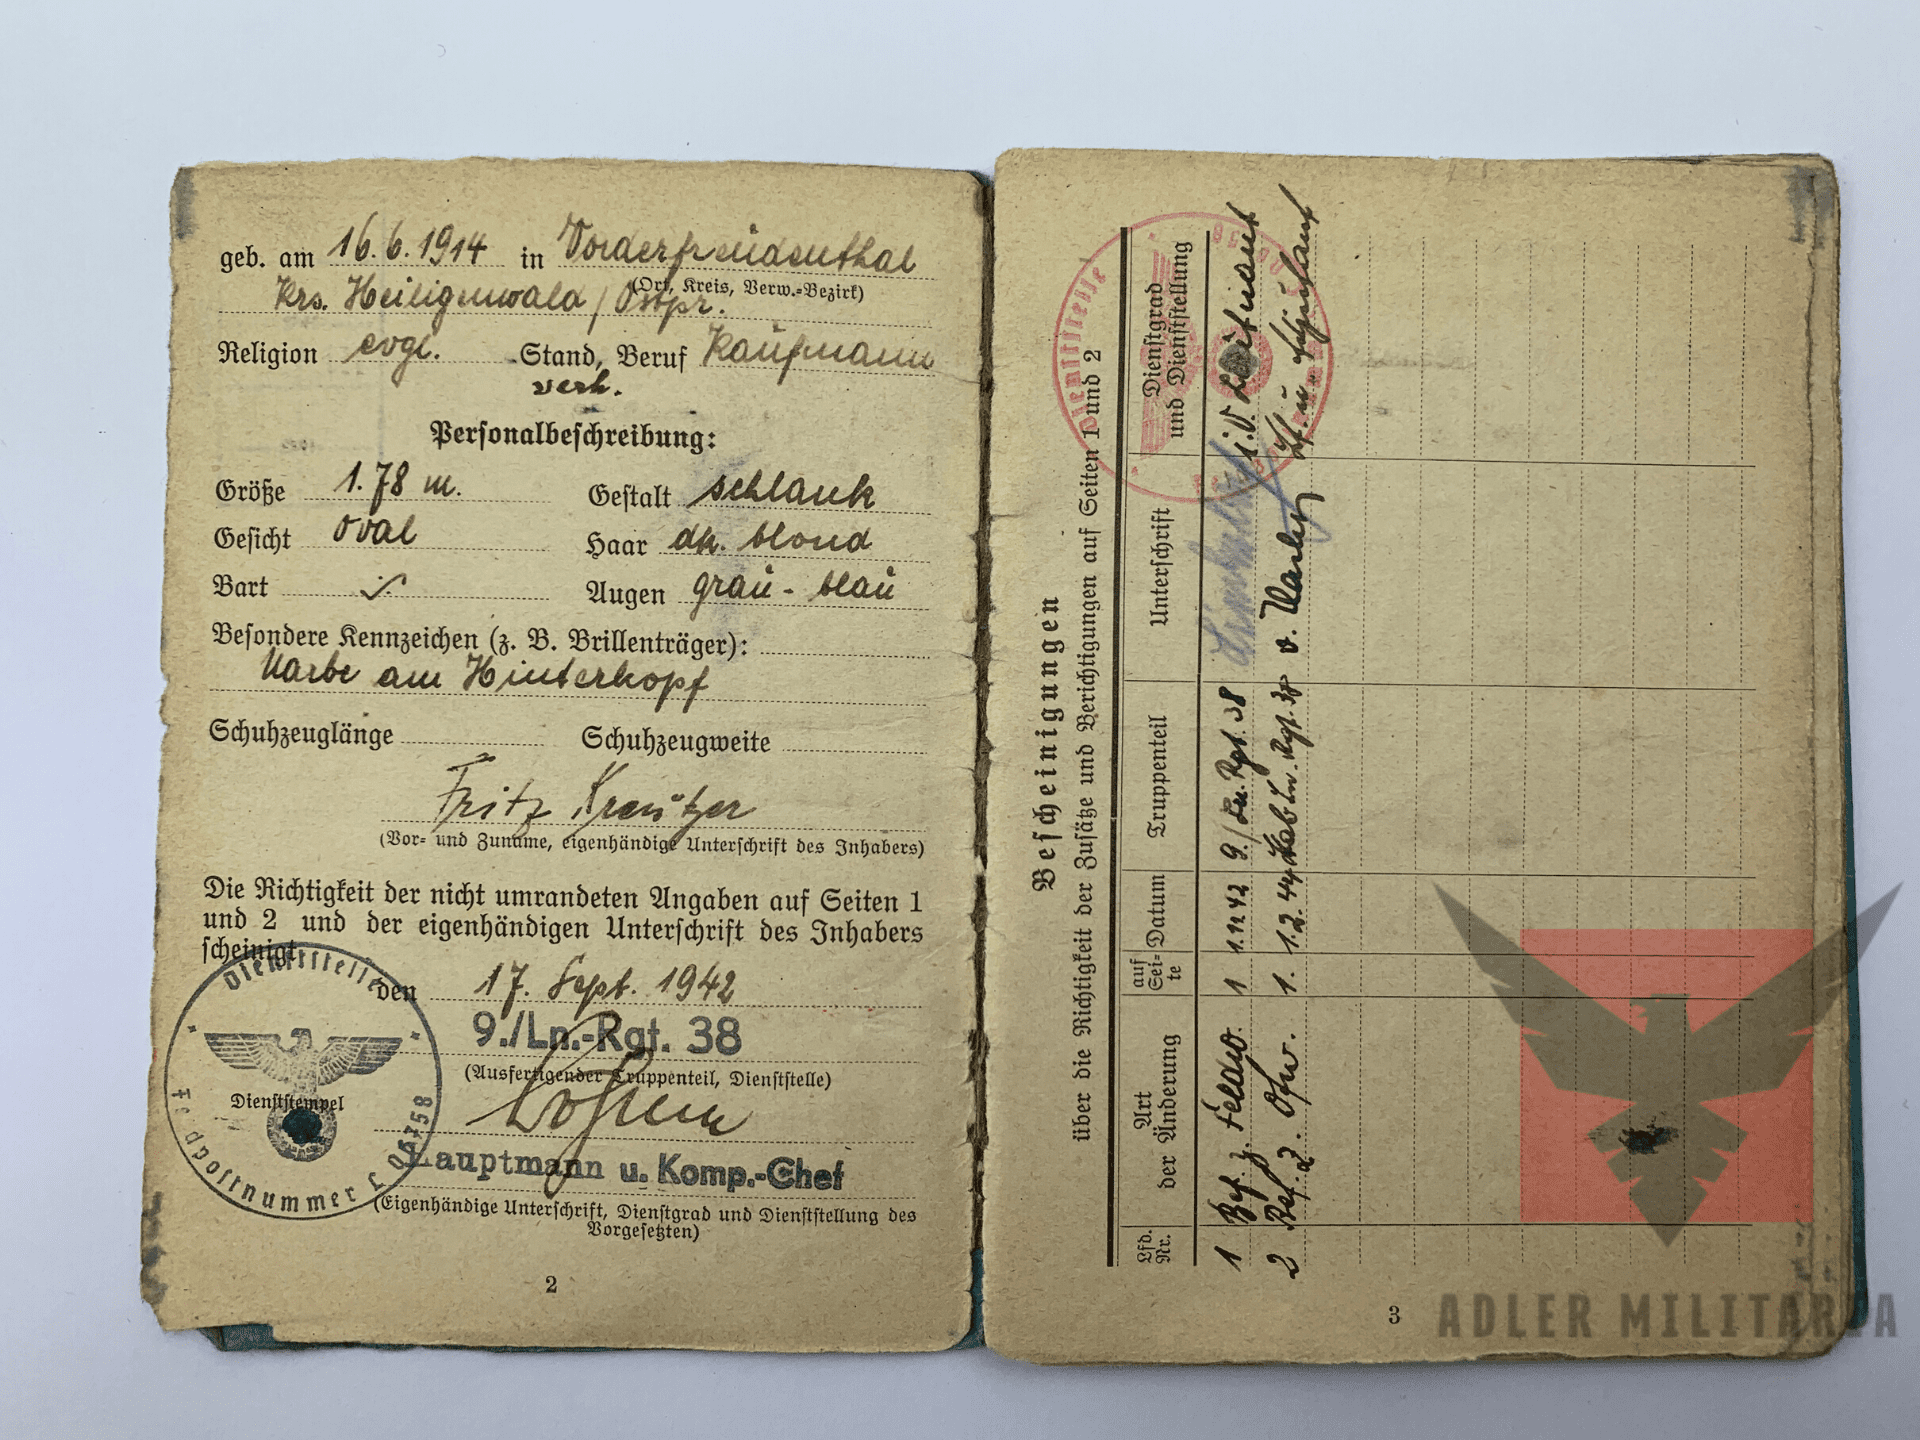 geb. am 16.6.1914 in Vorderfreudenthal
(Ort, Kreis, Verw.-Bezirk)
Krs. Heiligenwald / Ostpr.
Religion evgl. Stand, Beruf Kaufmann
verh.
Personalbeschreibung:
Größe 1.78 m. Gestalt schlank
Gesicht oval Haar dk. blond
Bart Augen grau-blau
Besondere Kennzeichen (z. B. Brillenträger):
Narbe am Hinterkopf
Schuhzeuglänge Schuhzeugweite
Fritz Kreutzer
(Vor- und Zuname, eigenhändige Unterschrift des Inhabers)
Die Richtigkeit der nicht umrandeten Angaben auf Seiten 1
und 2 und der eigenhändigen Unterschrift des Inhabers
scheinigt
den 17. Sept. 1942
9./Ln.-Rgt. 38
(Ausfertigender Truppenteil, Dienststelle)
Dienststelle
Feldpostnummer L 06758
Dienststempel
Hauptmann u. Komp.-Chef
(Eigenhändige Unterschrift, Dienstgrad und Dienststellung des
Vorgesetzten)
2
Bescheinigungen
über die Richtigkeit der Zusätze und Berichtigungen auf Seiten 1 und 2
Lfd. Nr. Art der Änderung auf Sei-te Datum Truppenteil Unterschrift Dienstgrad und Dienststellung
1 Bef. z. Feldw. 1 1.11.42 9./Ln. Rgt. 38 i.V. Leutnant
2 Bef. z. Ofw. 1. 1.2.44 Rgt. 38 Lt. u. Adjutant
Dienststelle
3
ADLER MILITARIA